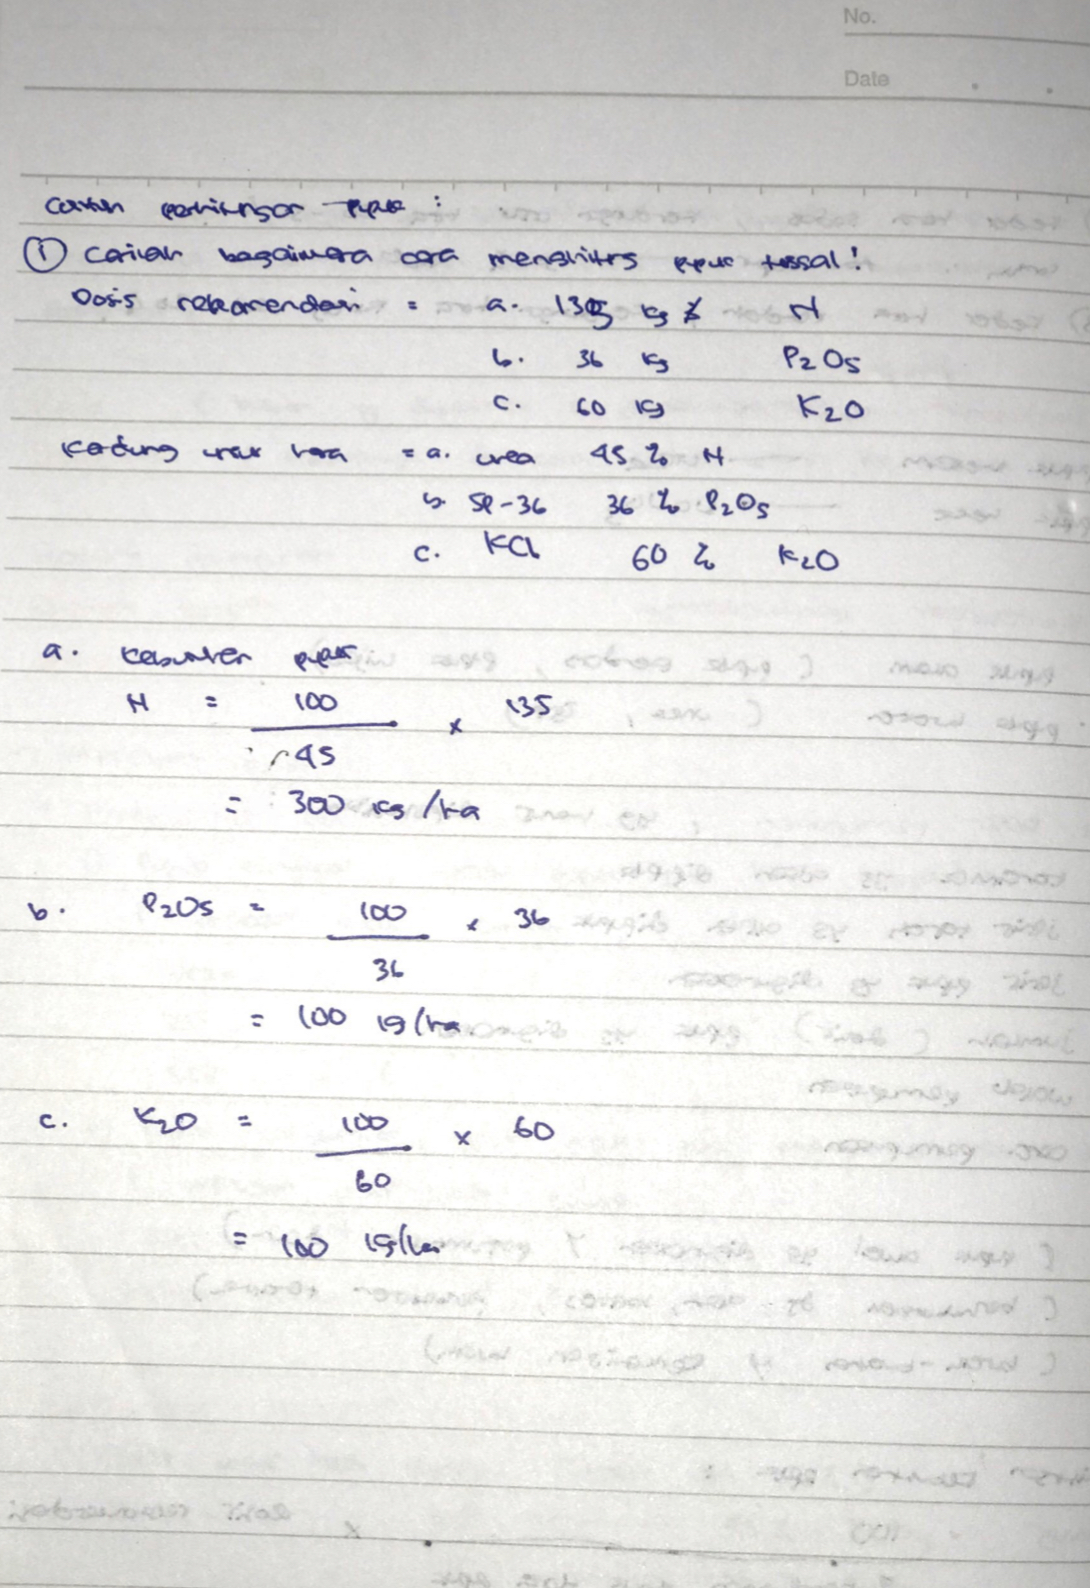 No.
Date
Contoh perhitungan pupuk :
① Carilah bagaimana cara menghitung pupuk tunggal !
Dosis rekomendasi = a. 135 kg N
b. 36 kg P2O5
c. 60 kg K2O
Kandung unsur hara = a. urea 45 % N
b. SP-36 36 % P2O5
c. KCl 60 % K2O
a. Kebutuhan pupuk
N = 100 × 135
45
= 300 kg /ha
b. P2O5 = 100 × 36
36
= 100 kg/ha
c. K2O = 100 × 60
60
= 100 kg/ha